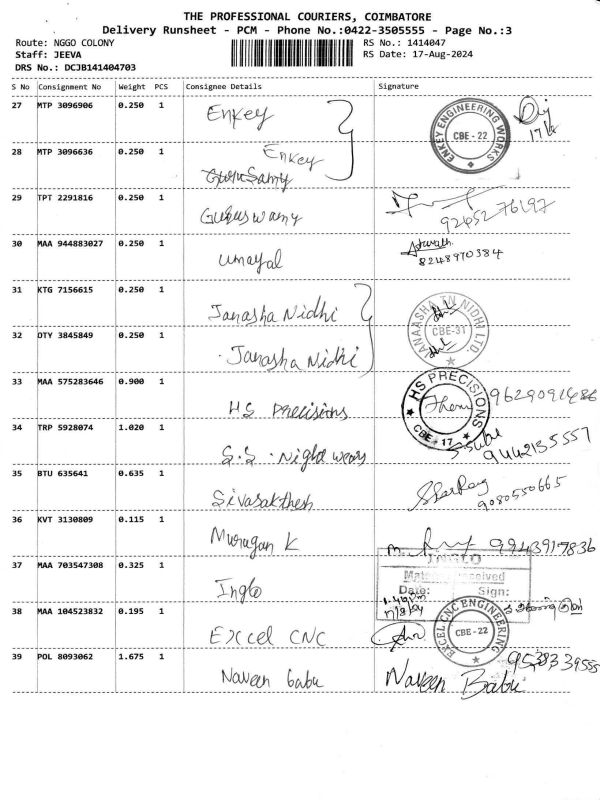 THE PROFESSIONAL COURIERS, COIMBATORE
Delivery Runsheet - PCM - Phone No.:0422-3505555 - Page No.:3
Route: NGGO COLONY
RS No.: 1414047
Staff: JEEVA
RS Date: 17-Aug-2024
DRS No.: DCJB141404703
S No Consignment No Weight PCS Consignee Details Signature
27 MTP 3096906 0.250 1 Enkey
ENKEY ENGINEERING WORKS CBE - 22
28 MTP 3096636 0.250 1 Enkey
29 TPT 2291816 0.250 1 Guruswamy
92452 76197
30 MAA 944883027 0.250 1 umayal
8248970384
31 KTG 7156615 0.250 1 Janasha Nidhi
NIDHI LTD. CBE-31
32 OTY 3845849 0.250 1 Janasha Nidhi
33 MAA 575283646 0.900 1 HS Precisions
HS PRECISIONS CBE - 17
34 TRP 5928074 1.020 1 S.S. Night wears
9442135557
35 BTU 635641 0.635 1 Sivasakthesh
9080550665
36 KVT 3130809 0.115 1 Murugan K
37 MAA 703547308 0.325 1 Inglo
INGLO
Material Received
Date: Sign:
38 MAA 104523832 0.195 1 Excel CNC
EXCEL CNC ENGINEERING CBE-22
39 POL 8093062 1.675 1 Naveen babu
Naveen Babu